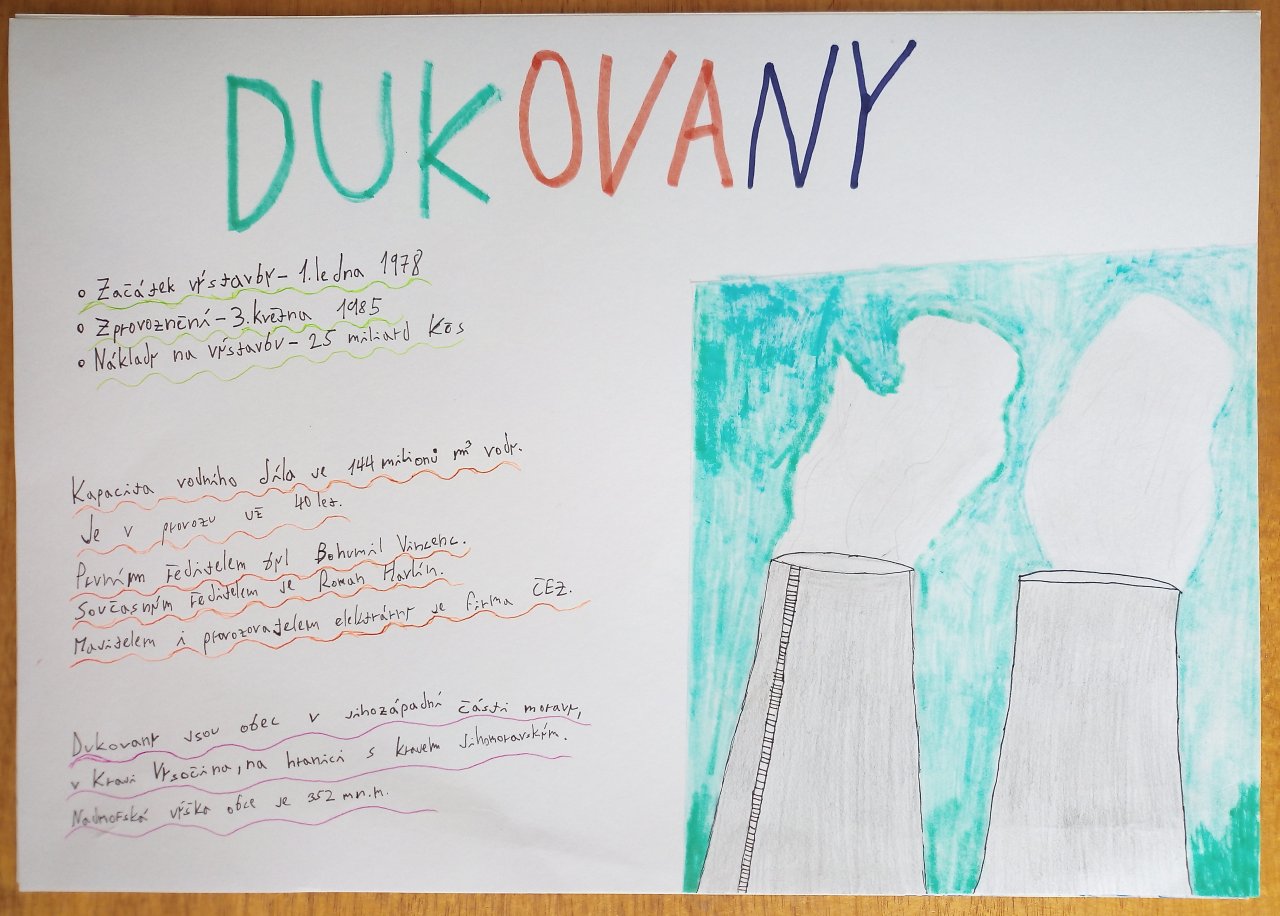 DUKOVANY
Začátek výstavby – 1. ledna 1978
Zprovoznění – 3. května 1985
Náklady na výstavby – 25 miliard Kčs
Kapacita vodního díla je 144 milionů m³ vody.
Je v provozu už 40 let.
Prvním ředitelem byl Bohumil Vincenc.
Současným ředitelem je Roman Havlín.
Majitelem i provozovatelem elektrárny je firma ČEZ.
Dukovany jsou obec v jihozápadní části moravy,
v Kraji Vysočina, na hranici s krajem Jihomoravským.
Nadmořská výška obce je 352 m n. m.